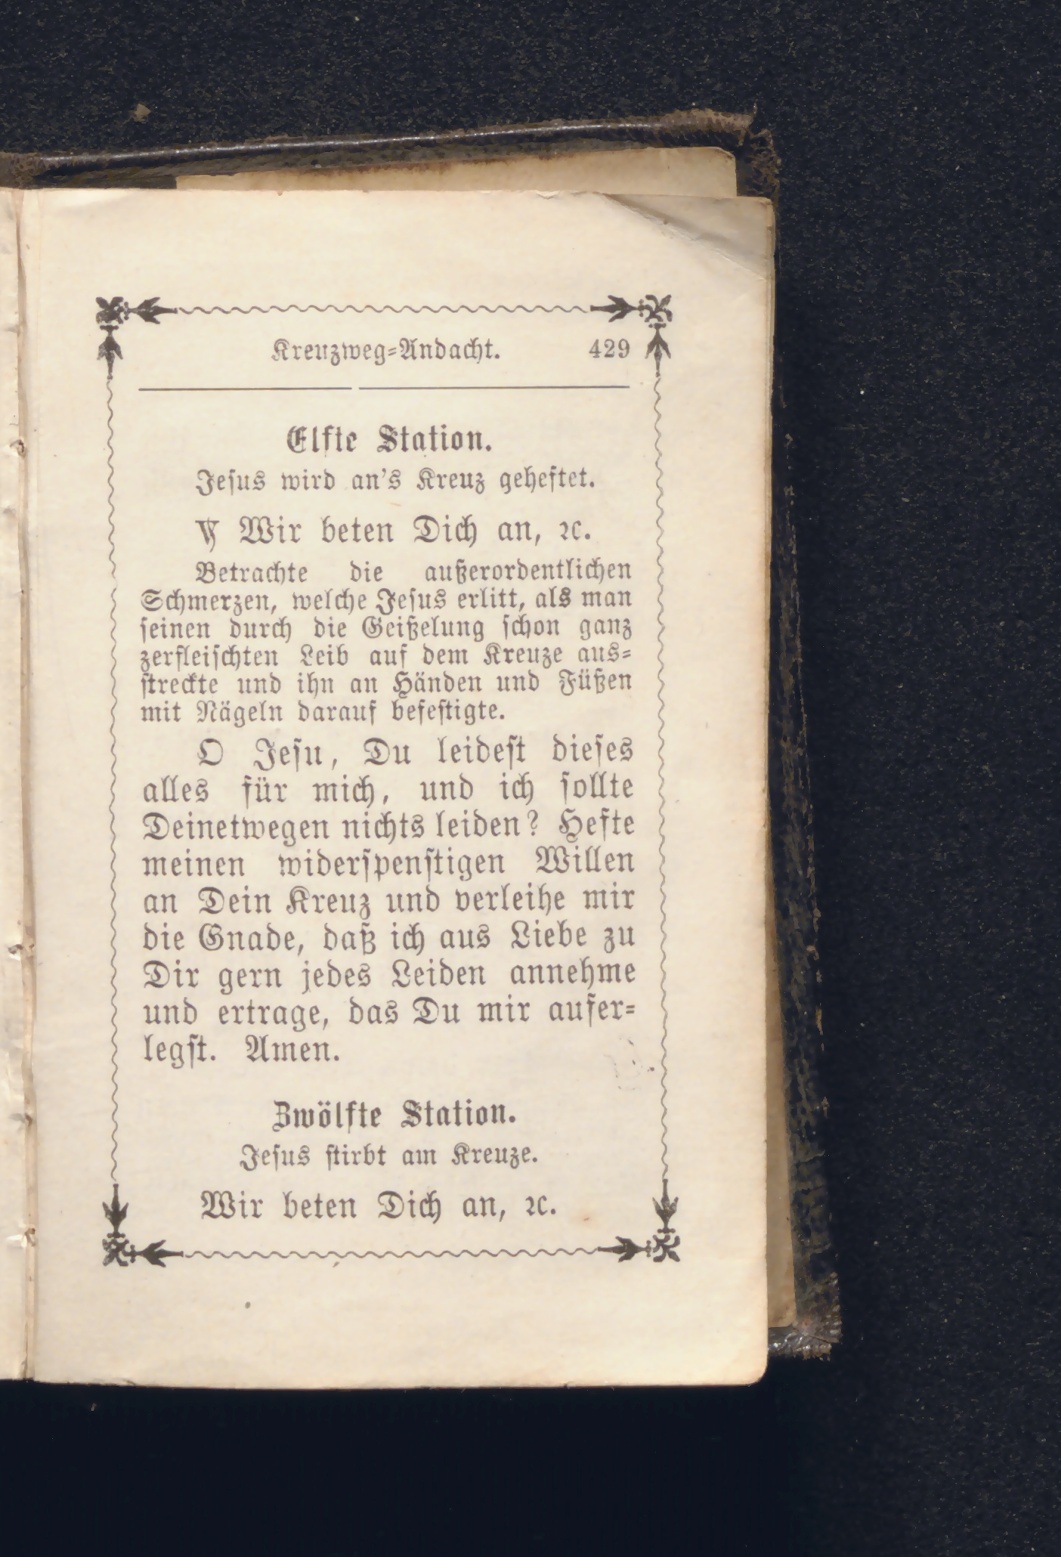 Kreuzweg-Andacht. 429
Elfte Station.
Jesus wird an's Kreuz geheftet.
℣ Wir beten Dich an, ꝛc.
Betrachte die außerordentlichen
Schmerzen, welche Jesus erlitt, als man
seinen durch die Geißelung schon ganz
zerfleischten Leib auf dem Kreuze aus-
streckte und ihn an Händen und Füßen
mit Nägeln darauf befestigte.
O Jesu, Du leidest dieses
alles für mich, und ich sollte
Deinetwegen nichts leiden? Hefte
meinen widerspenstigen Willen
an Dein Kreuz und verleihe mir
die Gnade, daß ich aus Liebe zu
Dir gern jedes Leiden annehme
und ertrage, das Du mir aufer-
legst. Amen.
Zwölfte Station.
Jesus stirbt am Kreuze.
Wir beten Dich an, ꝛc.